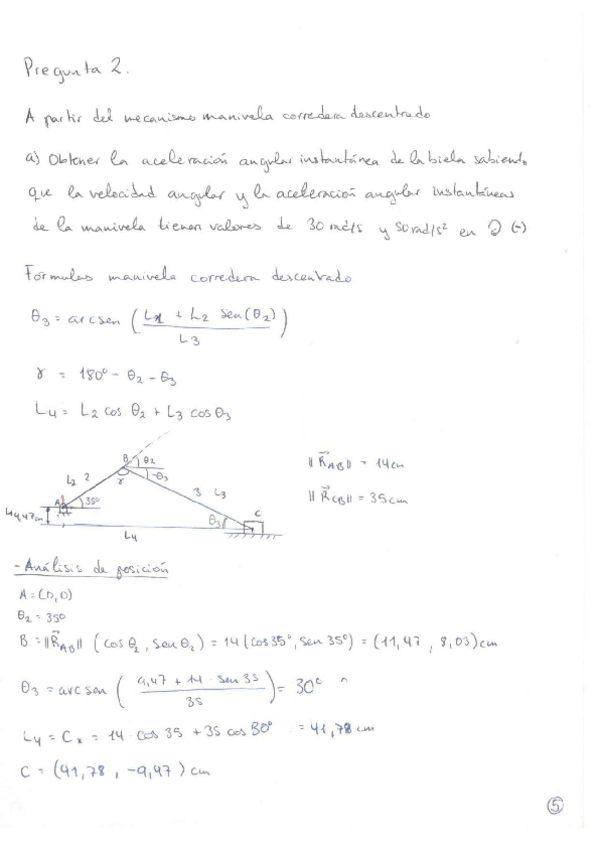 Pregunta 2.
A partir del mecanismo manivela corredera descentrado
a) Obtener la aceleración angular instantánea de la biela sabiendo
que la velocidad angular y la aceleración angular instantáneas
de la manivela tienen valores de 30 rad/s y 50 rad/s² en ↻ (-)
Fórmulas manivela corredera descentrado
θ3 = arcsen ( L1 + L2 sen(θ2) / L3 )
γ = 180º - θ2 - θ3
L4 = L2 cos θ2 + L3 cos θ3
B θ2
-θ3
L2 2 γ
A 35º
3 L3
C
θ3
L1 9,47cm
L4
‖R⃗AB‖ = 14cm
‖R⃗CB‖ = 35cm
- Análisis de posición
A = (0,0)
θ2 = 35º
B = ‖R⃗AB‖ (cos θ2, sen θ2) = 14 (cos 35º, sen 35º) = (11,47 , 8,03) cm
θ3 = arcsen ( 9,47 + 14 · sen 35 / 35 ) = 30º
L4 = Cx = 14 · cos 35 + 35 cos 30º = 41,78 cm
C = (41,78 , -9,47) cm
5